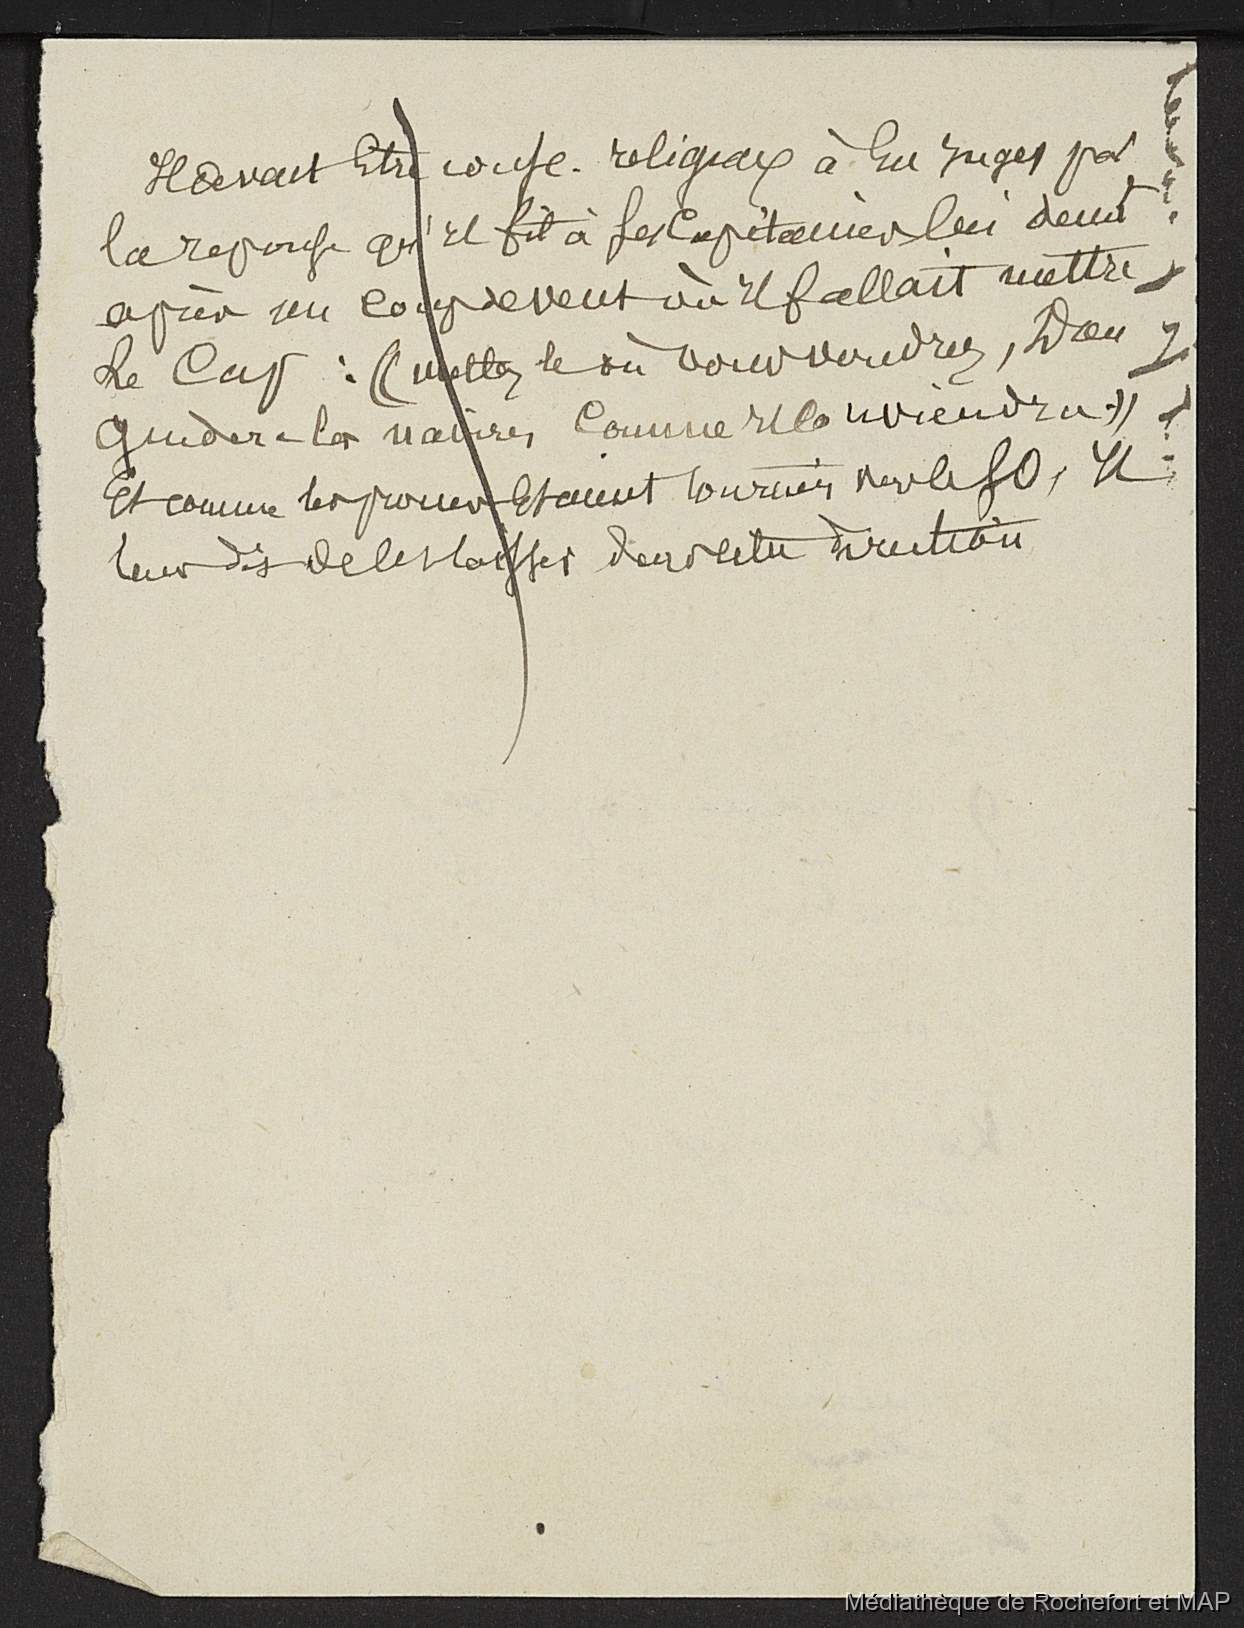 Il devait être aussi religieux à En Juger par
la reponse qu'Il fit à ses Capitaines lui demt
après un coup de vent où Il fallait mettre
Le Cap : « mettez le où vous voudrez, Dieu
Guidera les navires Comme Il Conviendra »
Et comme les proues Etaient tournées vers le SO, Il
leur dis de les laisser dans cette direction
Médiathèque de Rochefort et MAP